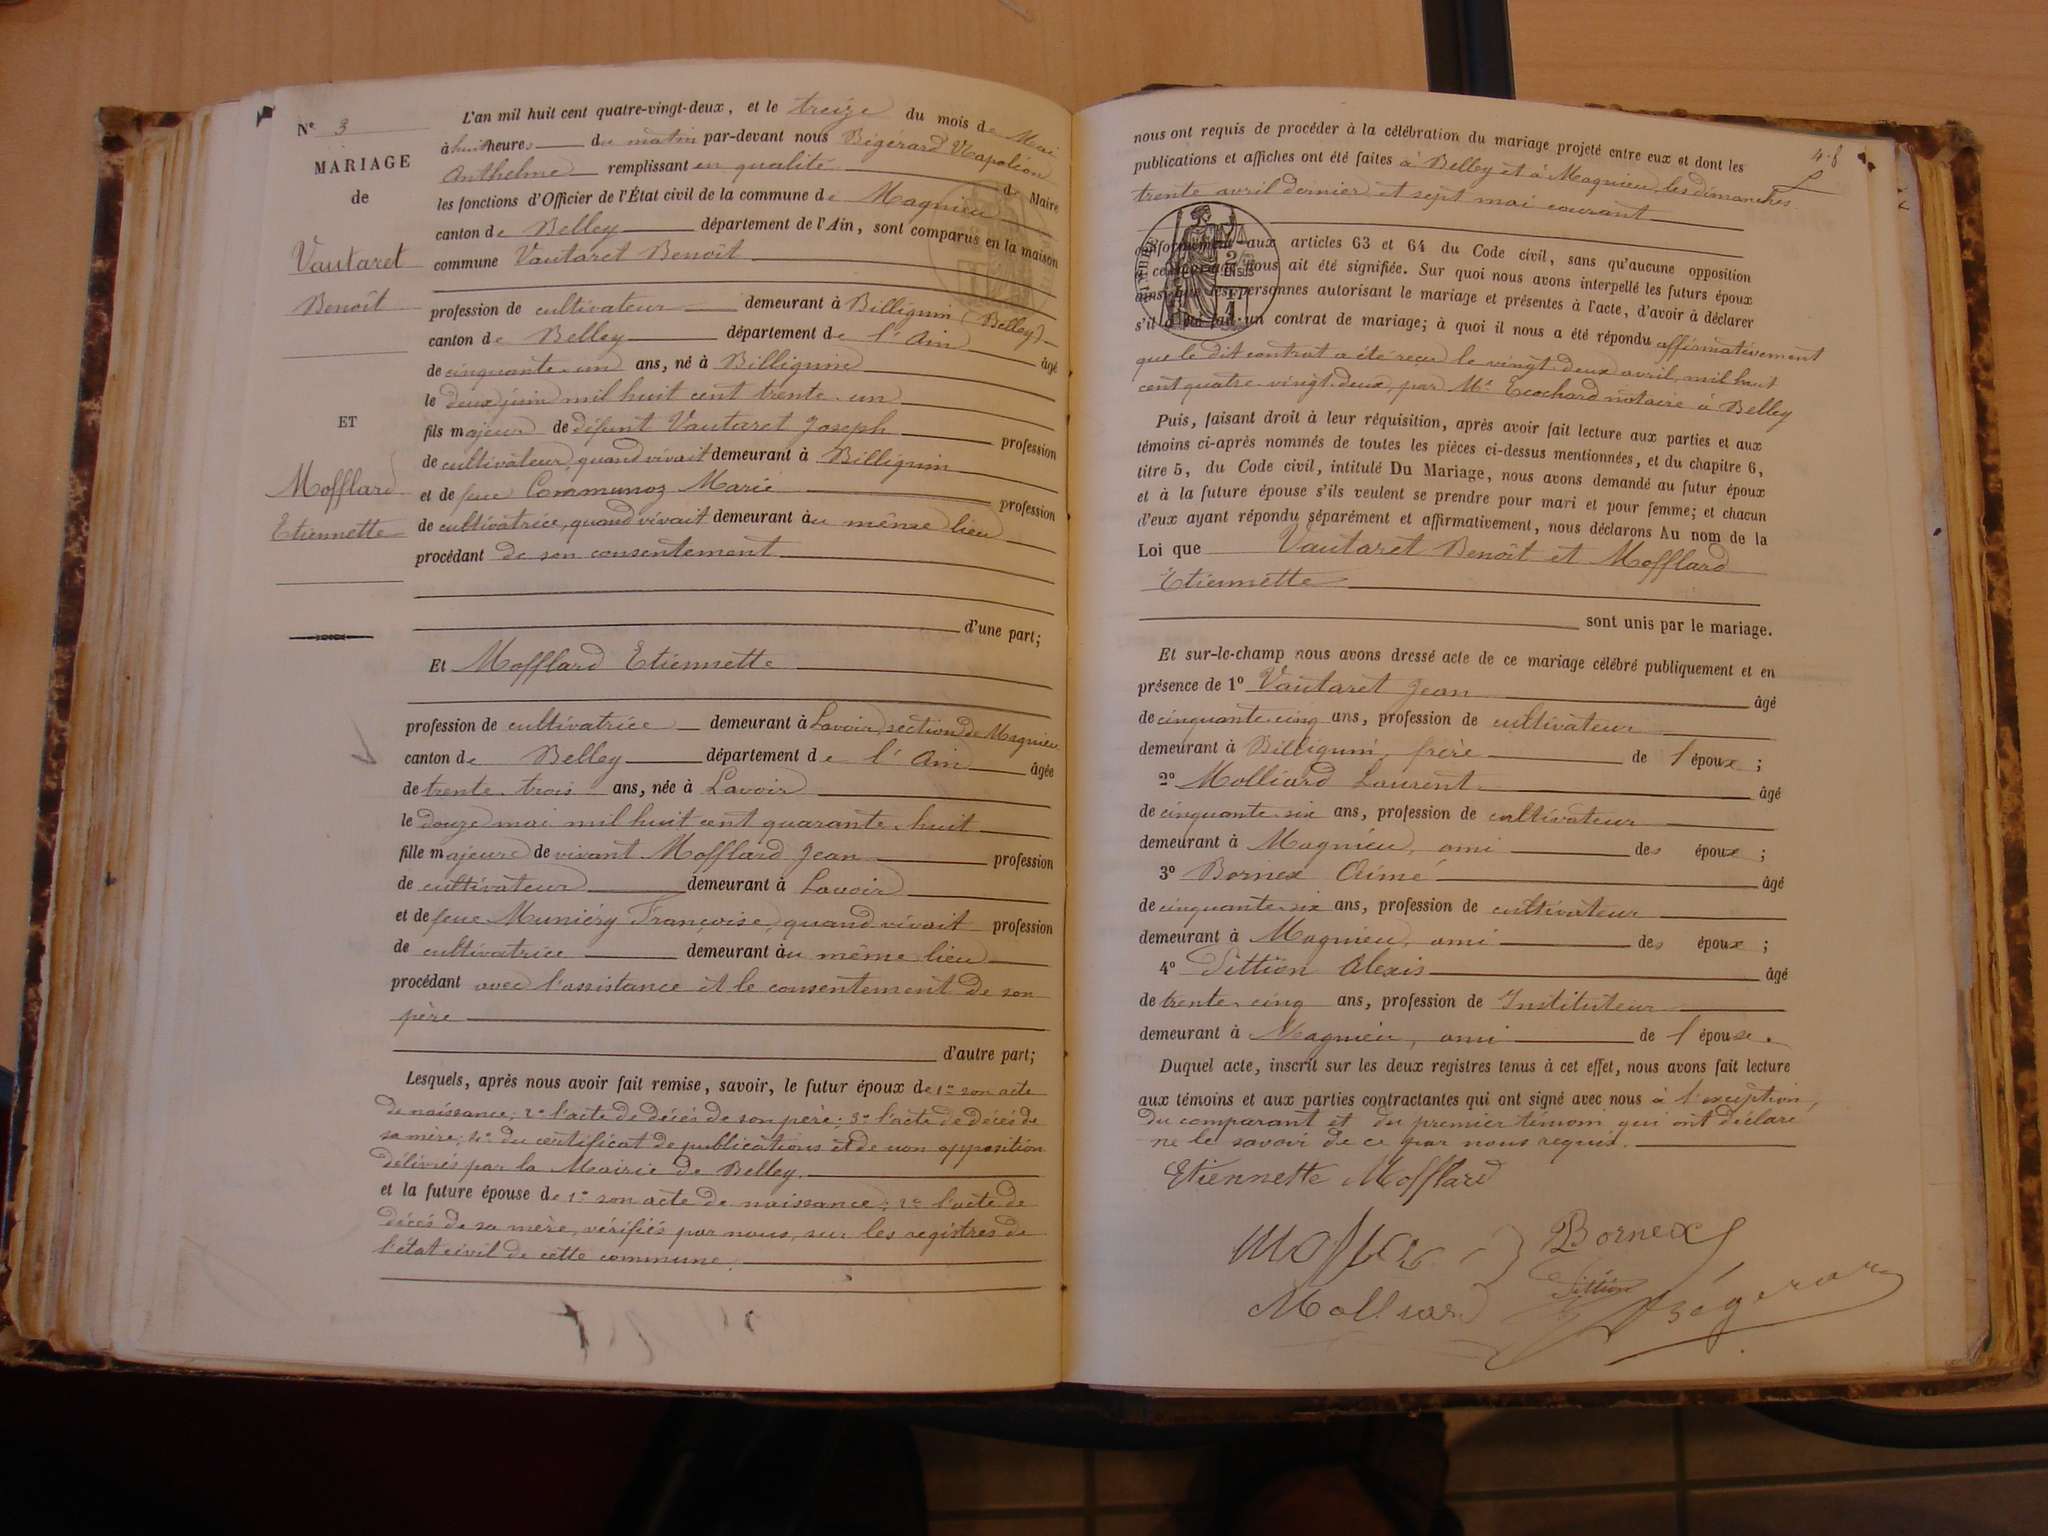 Nº 3
MARIAGE
de
Vautaret
Benoît
ET
Mofflard
Etiennette
L'an mil huit cent quatre-vingt-deux, et le treize du mois de Mai
à huit heures du matin par-devant nous Bégérard Napoléon
Anthelme remplissant en qualité de Maire
les fonctions d'Officier de l'État civil de la commune de Magnieu
canton de Belley département de l'Ain, sont comparus en la maison
commune Vautaret Benoît
profession de cultivateur demeurant à Billignin (Belley)
canton de Belley département de l'Ain âgé
de cinquante-un ans, né à Billignin
le deux juin mil huit cent trente-un
fils majeur de défunt Vautaret Joseph profession
de cultivateur, quand vivait demeurant à Billignin
et de feue Communoz Marie profession
de cultivatrice, quand vivait demeurant au même lieu
procédant de son consentement
d'une part;
Et Mofflard Etiennette
profession de cultivatrice demeurant à Lavoir, section de Magnieu
canton de Belley département de l'Ain âgée
de trente-trois ans, née à Lavoir
le douze mai mil huit cent quarante-huit
fille majeure de vivant Mofflard Jean profession
de cultivateur demeurant à Lavoir
et de feue Muniéry Françoise, quand vivait profession
de cultivatrice demeurant au même lieu
procédant avec l'assistance et le consentement de son
père
d'autre part;
Lesquels, après nous avoir fait remise, savoir, le futur époux de 1º son acte
de naissance; 2º l'acte de décés de son père; 3º l'acte de décés de
sa mère; 4º du certificat de publications et de non opposition
délivrés par la Mairie de Belley.
et la future épouse de 1º son acte de naissance; 2º l'acte de
décés de sa mère, vérifiés par nous, sur les registres de
l'état civil de cette commune.
nous ont requis de procéder à la célébration du mariage projeté entre eux et dont les
publications et affiches ont été faites à Belley et à Magnieu, les dimanches
trente avril dernier et sept mai courant
conformément aux articles 63 et 64 du Code civil, sans qu'aucune opposition
à ce mariage nous ait été signifiée. Sur quoi nous avons interpellé les futurs époux
ainsi que les personnes autorisant le mariage et présentes à l'acte, d'avoir à déclarer
s'il a été fait un contrat de mariage; à quoi il nous a été répondu affirmativement
que le dit contrat a été reçu le vingt-deux avril, mil huit
cent quatre-vingt-deux, par Me Ecochard notaire à Belley
Puis, faisant droit à leur réquisition, après avoir fait lecture aux parties et aux
témoins ci-après nommés de toutes les pièces ci-dessus mentionnées, et du chapitre 6,
titre 5, du Code civil, intitulé Du Mariage, nous avons demandé au futur époux
et à la future épouse s'ils veulent se prendre pour mari et pour femme; et chacun
d'eux ayant répondu séparément et affirmativement, nous déclarons Au nom de la
Loi que Vautaret Benoît et Mofflard
Etiennette
sont unis par le mariage.
Et sur-le-champ nous avons dressé acte de ce mariage célébré publiquement et en
présence de 1º Vautaret Jean âgé
de cinquante-cinq ans, profession de cultivateur
demeurant à Billignin, frère de l'époux;
2º Molliard Laurent âgé
de cinquante-six ans, profession de cultivateur
demeurant à Magnieu, ami des époux;
3º Bornex Aimé âgé
de cinquante-six ans, profession de cultivateur
demeurant à Magnieu, ami des époux;
4º Sittion Alexis âgé
de trente-cinq ans, profession de Instituteur
demeurant à Magnieu, ami de l'épouse.
Duquel acte, inscrit sur les deux registres tenus à cet effet, nous avons fait lecture
aux témoins et aux parties contractantes qui ont signé avec nous à l'exception,
du comparant et du premier témoin qui ont déclaré
ne le savoir de ce par nous requis.
Etiennette Mofflard
Bornex
Molliard
Sittion
Bégérard